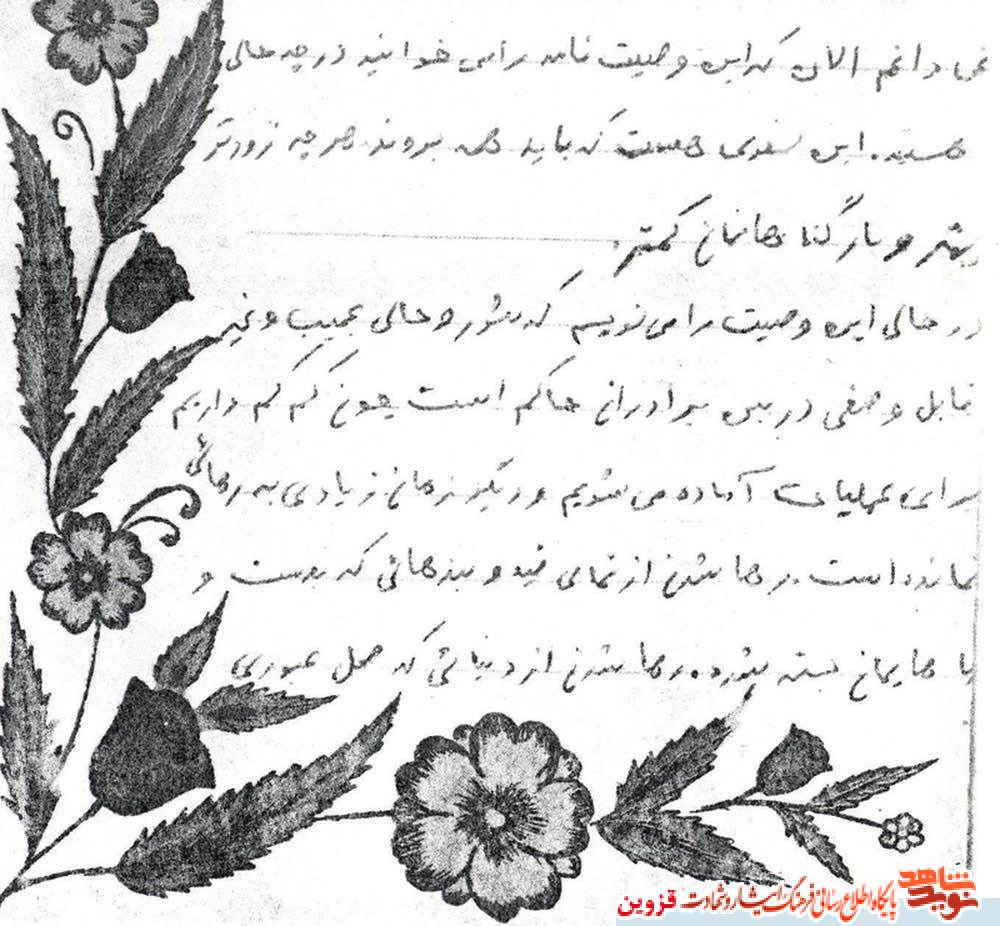 نمی دانم الان که این وصیت نامه را می خوانید در چه حالی
هستید. این سفری هست که باید همه بروند هر چه زودتر
بهتر و بار گناهانمان کمتر.
در حالی این وصیت را می نویسم که شور و حالی عجیب و غیر
قابل وصفی در بین برادران حاکم است چون کم کم داریم
برای عملیات آماده می شویم و دیگر زمان زیادی به رهائی
نمانده است. رها شدن از تمامی قید و بندهائی که بدست و
پاهایمان بسته شده. رها شدن از دنیائی که محل عبوری
نوید شاهد
پایگاه اطلاع رسانی فرهنگ ایثار و شهادت قزوین